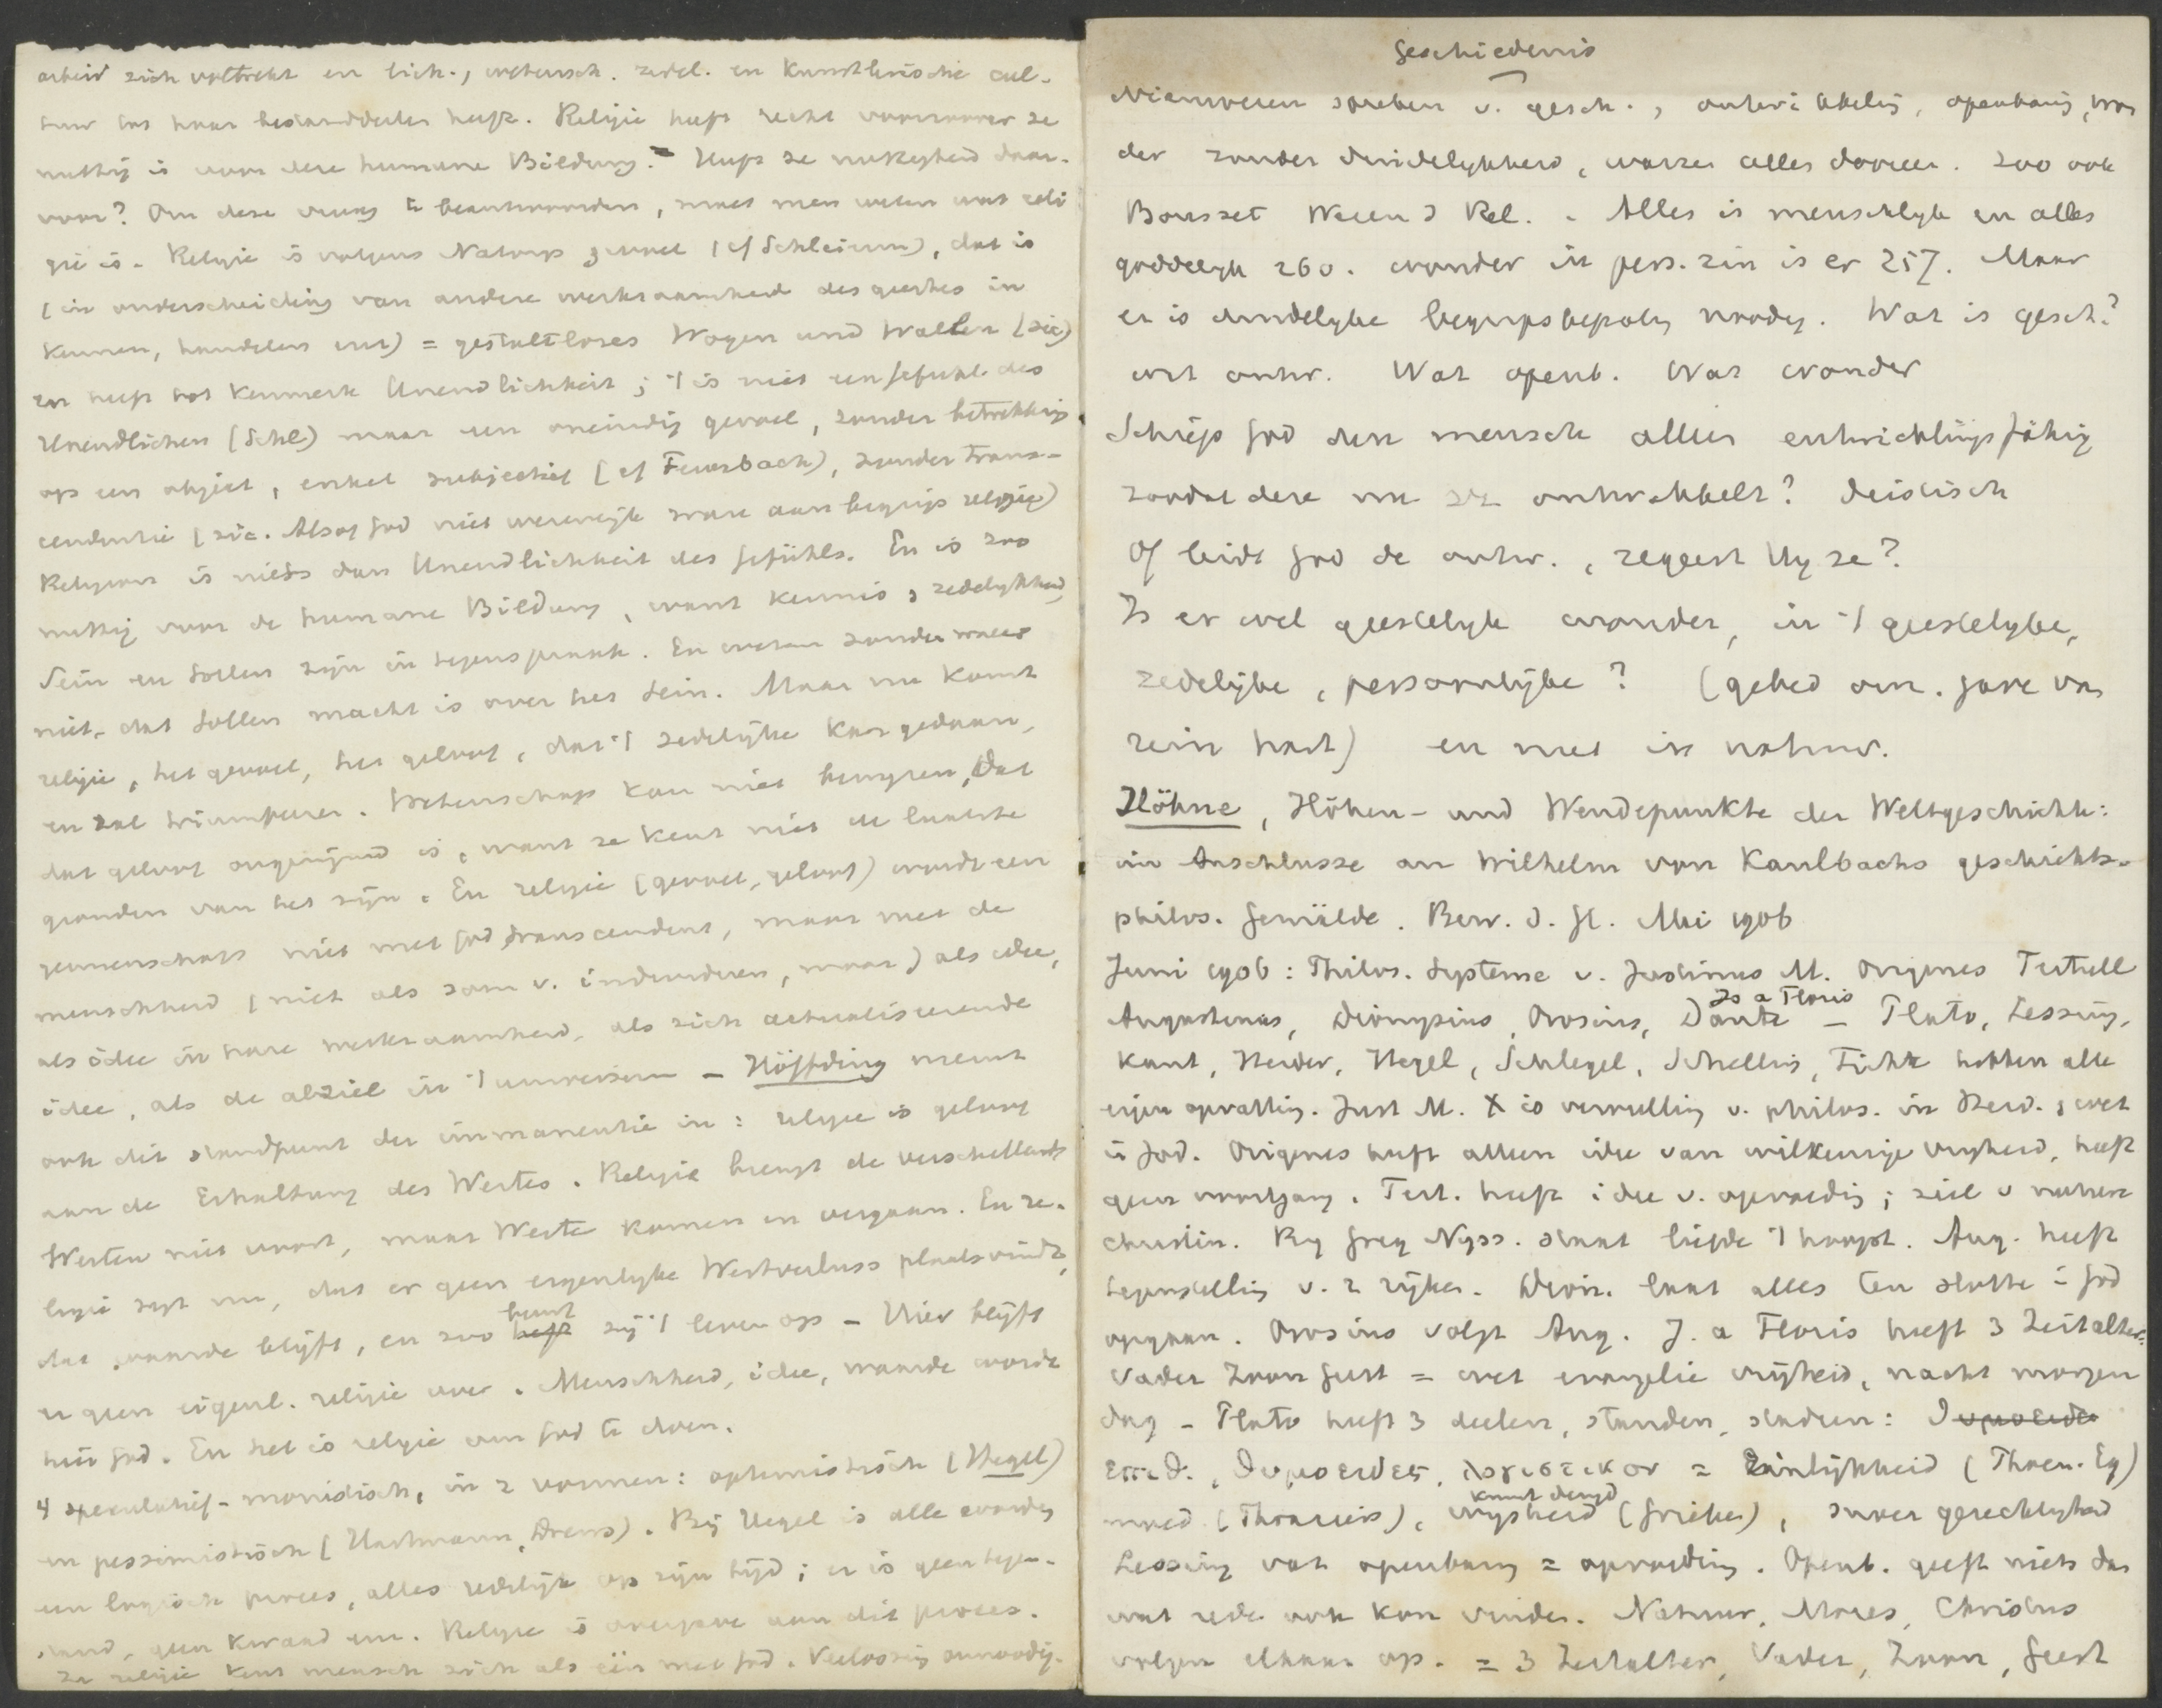 arbeid zich voltrekt en lich., wetensch. zedel. en Kunstlerische cul-
tuur tot haar bestanddeelen heeft. Religie heeft recht voorzoover ze
nuttig is voor deze humane Bildung. Heeft ze nuttigheid daar-
voor? Om deze vraag te beantwoorden, moet men weten wat reli
gie is. Religie is volgens Natorp gevoel (cf Schleierm), dat is
(in onderscheiding van andere werkzaamheid des geestes in
kennen, handelen enz) = gestaltloses Wogen und Wallen (sic)
en heeft tot kenmerk Unendlichkeit; 't is niet een Gefühl des
Unendlichen (Schl) maar een oneindig gevoel, zonder betrekking
op een object, enkel subjectief (cf Feuerbach), zonder trans-
cendentie (sic. Alsof God niet wezenlijk ware aan begrip religie)
Religion is niets dan Unendlichkeit des Gefühls. En is zoo
nuttig voor de humane Bildung, want kennis & zedelykheid,
Sein en Sollen zijn in tegenspraak. En weten zonder meer
niet, dat Sollen macht is over het Sein. Maar nu komt
religie, het gevoel, het geloof, dat 't zedelijke kan gedaan,
en zal triumfeeren. Wetenschap kan niet bewyzen, dat
dat geloof ongerijmd is, want ze kent niet de laatste
gronden van het zijn. En religie (gevoel, geloof) wordt een
gemeenschap niet met God transcendent, maar met de
menschheid (niet als som v. individuen, maar) als idee,
als idee in hare werkzaamheid, als zich actualiseerende
idee, als de alziel in 't universum – Höffding neemt
ook dit standpunt der immanentie in: religie is geloof
aan de Erhaltung des Wertes. Religie brengt de verschillende
Werten niet voort, maar Werte komen en vergaan. En re-
ligie zegt nu, dat er geen eigenlyke Wertverluss plaatsvindt,
dat waarde blijft, en zoo heft beurt zij 't leven op – Hier blijft
er geen eigenl. religie over. Menschheid, idee, waarde wordt
hier God. En het is religie om God te doen.
4 speculatief-monistisch, in 2 vormen: optimistisch (Hegel)
en pessimistisch (Hartmann, Drews). Bij Hegel is alle wording
een logisch proces, alles redelijk op zijn tijd; er is geen tegen-
stand, geen kwaad enz. Religie is overgave aan dit proces.
In religie kent mensch zich als één met God. Verlossing onnoodig.
Geschiedenis
Nieuweren spreken v. gesch., ontwikkeling, openbaring, won
der zonder duidelykheid, warren alles dooreen. Zoo ook
Bousset Wesen d Rel. . Alles is menschlyk en alles
goddelyk 260. Wonder in pers. zin is er 257. Maar
er is duidelyke begripsbepaling noodig. Wat is gesch.?
wat ontw. Wat openb. Wat wonder
Schiep God den mensch alleen entwicklungsfähig
zoodat deze nu ontwikkelt? Deistisch
Of leidt God de ontw., regeert Hy ze?
Is er wel geestelyk wonder, in 't geestelyke,
zedelijke, persoonlijke? (gebed om. gave van
rein hart) en niet in natuur.
Höhne, Höhen- und Wendepunkte der Weltgeschichte:
im Anschlusse an Wilhelm von Kaulbachs geschichts-
philos. Gemälde. Bew. d. Gl. Mei 1906
Juni 1906: Philos. Systeme v. Justinus M. Origenes Tertull
Augustinus, Dionysius, Orosius, Dante Jo a Floris – Plato, Lessing,
Kant, Herder, Hegel, Schlegel, Schelling, Fichte hebben alle
eigen opvatting. Just M. X is vervulling v. philos. in Heid. & wet
i Jod. Origenes heeft alleen idee van willkeurige vrijheid, heeft
geen voortgang. Tert. heeft idee v. opvoeding; ziel v nature
christin. By Greg Nyss. staat liefde 't hoogst. Aug. heeft
tegenstelling v. 2 rijken. Dion. laat alles ten slotte i God
opgaan. Orosius volgt Aug. J. a Floris heeft 3 Zeitalter:
Vader Zoon Geest = wet evangelie vrijheid, nacht morgen
dag – Plato heeft 3 deelen, standen, stadien:
επιθ., θυμοειδες, λογιστικον = Zinlijkheid (Phoen. Eg)
moed (Thraciers), wysheid (Grieken), kunst deugd
Lessing vat openbaring = opvoeding. Openb. geeft niets dan
wat rede ook kan vinden. Natuur, Mozes, Christus
volgen elkaar op. = 3 Zeitalter, Vader, Zoon, Geest